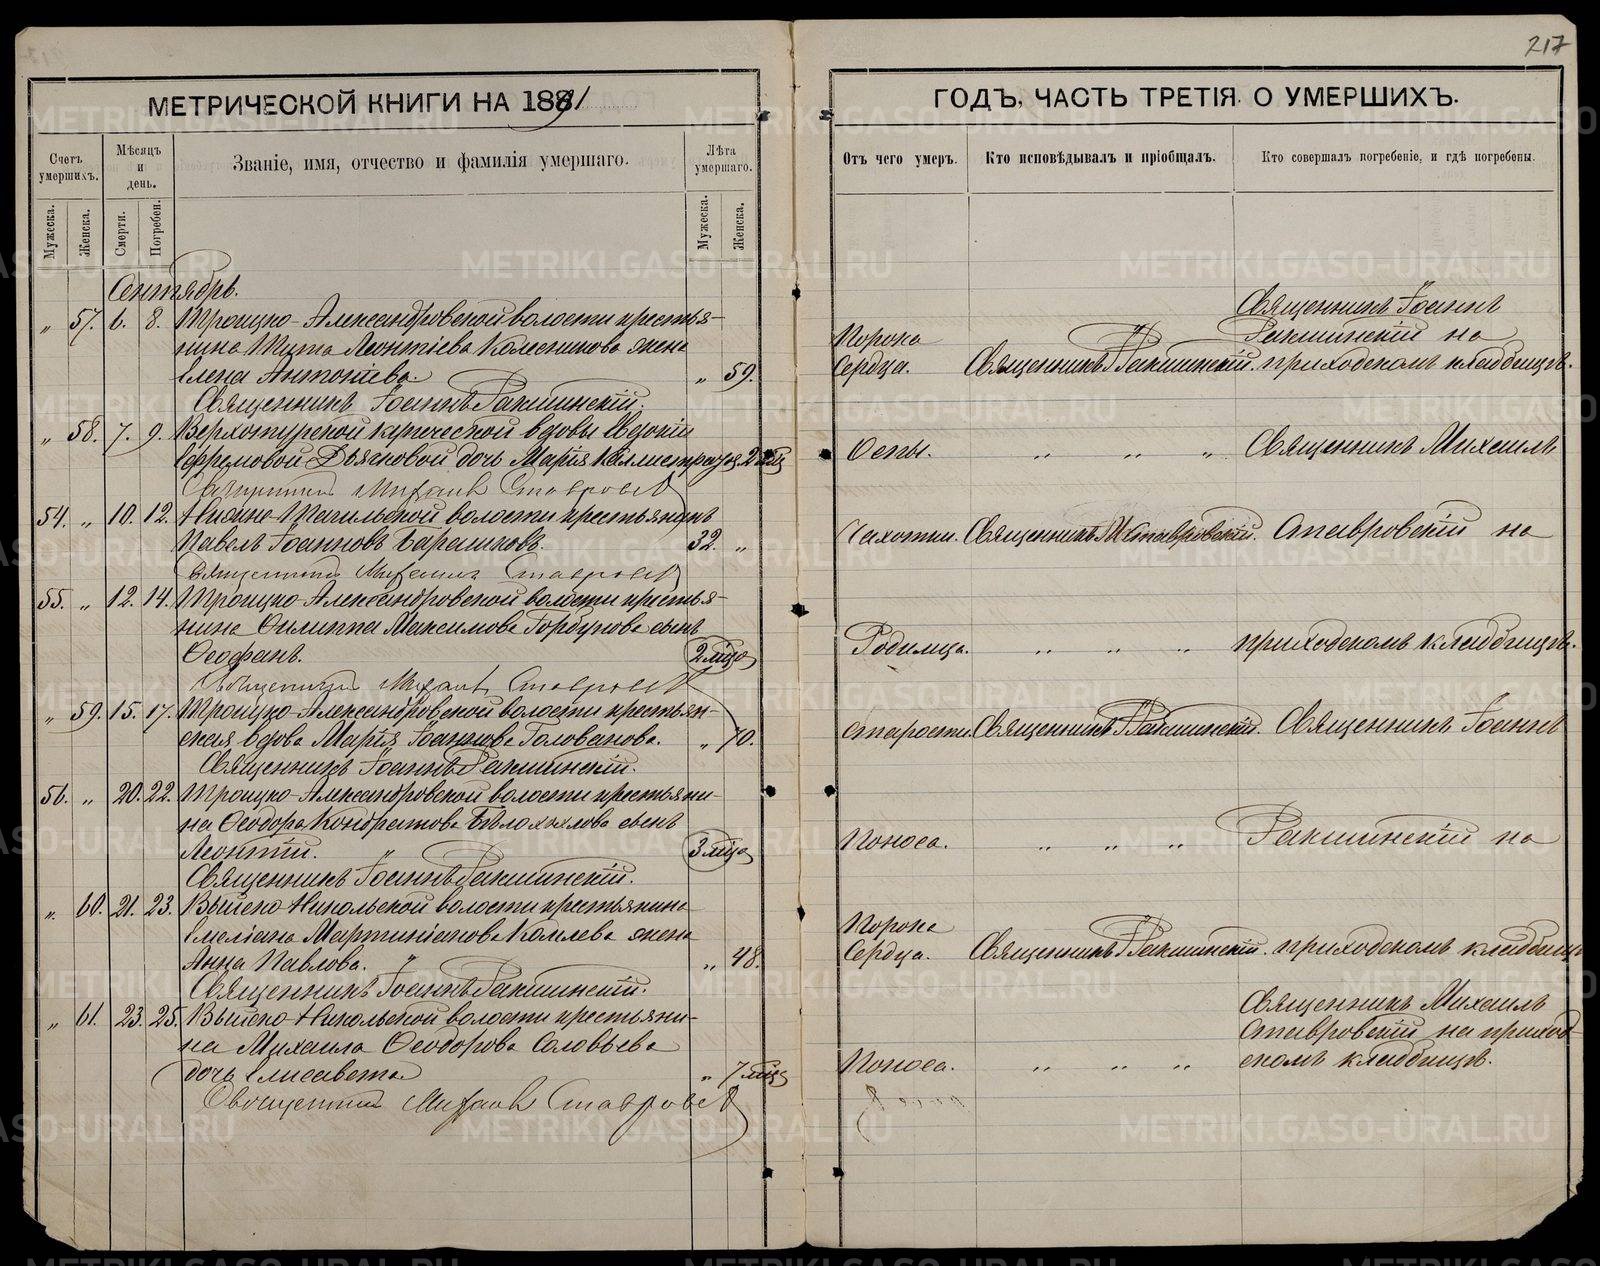 217
МЕТРИЧЕСКОЙ КНИГИ НА 1891
ГОДЪ, ЧАСТЬ ТРЕТІЯ О УМЕРШИХЪ.
Счетъ умершихъ.
Мѣсяцъ и день.
Званіе, имя, отчество и фамилія умершаго.
Лѣта умершаго.
Отъ чего умеръ.
Кто исповѣдывалъ и пріобщалъ.
Кто совершалъ погребеніе, и гдѣ погребены.
Мужеска.
Женска.
Смерти.
Погребен.
Мужеска.
Женска.
Сентябрь.
„ 57. 6. 8. Троицко-Александровской волости кресть-
янина Тита Леонтіева Колесникова жена
Елена Антоніева. „ 59.
Священникъ Іоаннъ Ракшинскій.
Порока
Сердца. Священникъ І Ракшинскій.
Священникъ Іоаннъ
Ракшинскій на
приходскомъ кладбищѣ.
„ 58. 7. 9. Верхотурской купеческой вдовы Евдокіи
Ефремовой Дьячковой дочь Марія
Священникъ Михаилъ Ставровскій
Оспы. „ „ „ Священникъ Михаилъ
54. „ 10. 12. Нижне-Тагильской волости крестьянинъ
Павелъ Іоанновъ Барашковъ. 32. „
Священникъ Михаилъ Ставровскій
Чахотки. Священникъ М Ставровскій. Ставровскій на
55. „ 12. 14. Троицко-Александровской волости кресть-
янина Филиппа Максимова Горбунова сынъ
Ѳеофанъ. 2 мѣс
Священникъ Михаилъ Ставровскій
Родимца. „ „ „ приходскомъ кладбищѣ.
„ 59. 15. 17. Троицко-Александровской волости крестьян-
ская вдова Марія Іоаннова Голованова. „ 70.
Священникъ Іоаннъ Ракшинскій.
Старости. Священникъ І Ракшинскій. Священникъ Іоаннъ
56. „ 20. 22. Троицко-Александровской волости крестьяни-
на Ѳеодора Кондратова Бѣлохохлова сынъ
Леонтій. 3 мѣс
Священникъ Іоаннъ Ракшинскій.
Поноса. „ „ „ Ракшинскій на
„ 60. 21. 23. Выйско-Никольской волости крестьянина
Емеліана Мартиніанова Комлева жена
Анна Павлова. „ 48.
Священникъ Іоаннъ Ракшинскій.
Порока
Сердца. Священникъ І Ракшинскій. приходскомъ кладбищѣ
„ 61. 23. 25. Выйско-Никольской волости крестьяни-
на Михаила Ѳеодорова Соловьева
дочь Елисавета. „ 7 мѣс
Священникъ Михаилъ Ставровскій
Поноса. „ „ „
Священникъ Михаилъ
Ставровскій на приход-
скомъ кладбищѣ.
METRIKI.GASO-URAL.RU